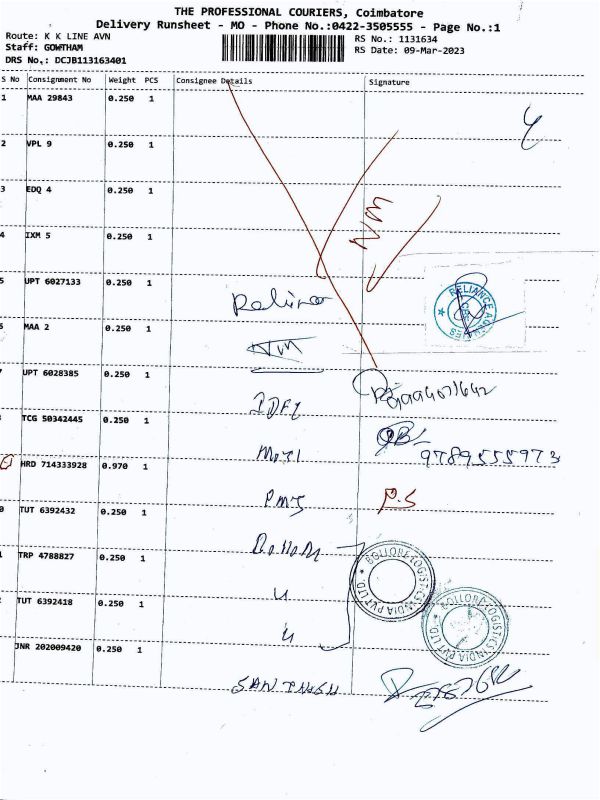 THE PROFESSIONAL COURIERS, Coimbatore
Delivery Runsheet - MO - Phone No.:0422-3505555 - Page No.:1
Route: K K LINE AVN
Staff: GOWTHAM
DRS No.: DCJB113163401
RS No.: 1131634
RS Date: 09-Mar-2023
S No Consignment No Weight PCS Consignee Details Signature
1 MAA 29843 0.250 1
2 VPL 9 0.250 1
3 EDQ 4 0.250 1
4 IXM 5 0.250 1
NM
5 UPT 6027133 0.250 1
Reliance
RELIANCE AGENCIES
CBE
6 MAA 2 0.250 1
NM
UPT 6028385 0.250 1
IDFC
TCG 50342445 0.250 1
9789555973
HRD 714333928 0.970 1
PMJ P.S
0 TUT 6392432 0.250 1
TRP 4788827 0.250 1
BOLLORE LOGISTICS INDIA PVT LTD.
TUT 6392418 0.250 1
BOLLORE LOGISTICS INDIA PVT LTD.
JNR 202009420 0.250 1
SANTHOSH